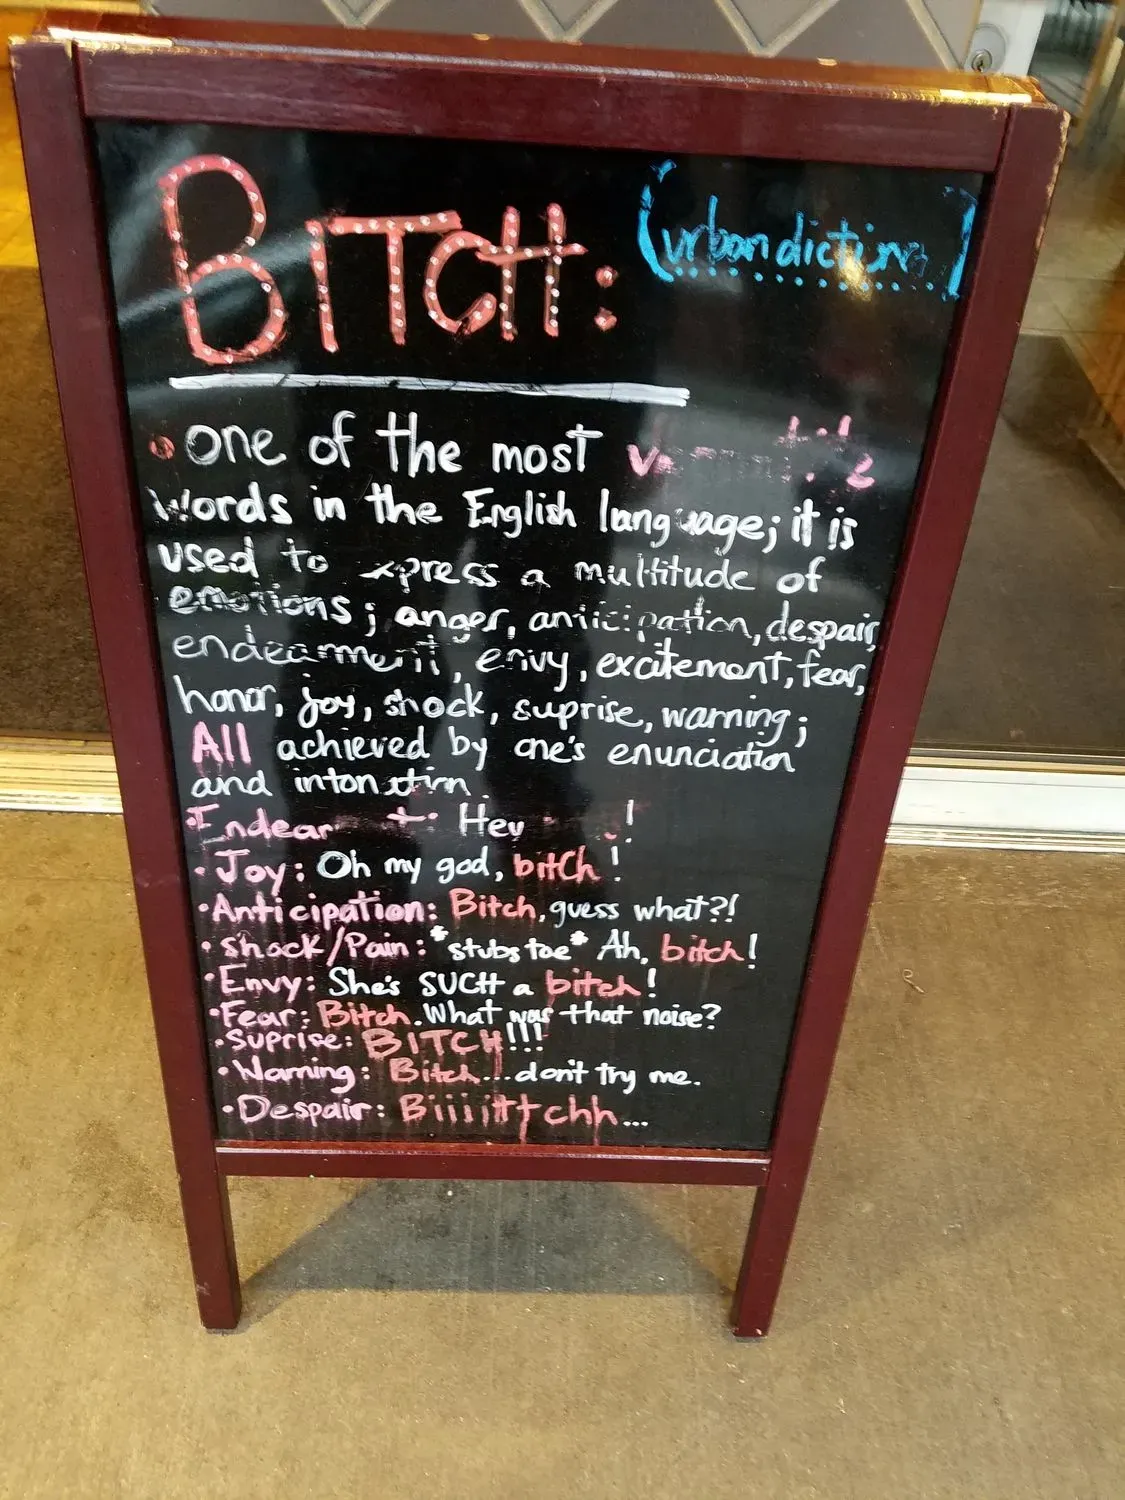 BITCH: (urban dictionary)
• one of the most
words in the English language; it is
used to xpress a multitude of
emotions; anger, anticipation, despair,
endearment, envy, excitement, fear,
honor, joy, shock, suprise, warning;
All achieved by one's enunciation
and intonation.
• Endear t: Hey !
• Joy: Oh my god, bitch!
• Anticipation: Bitch, guess what?!
• Shock/Pain: *stubs toe* Ah, bitch!
• Envy: She's SUCH a bitch!
• Fear: Bitch. What was that noise?
• Suprise: BITCH!!!
• Warning: Bitch...don't try me.
• Despair: Biiiittchh...